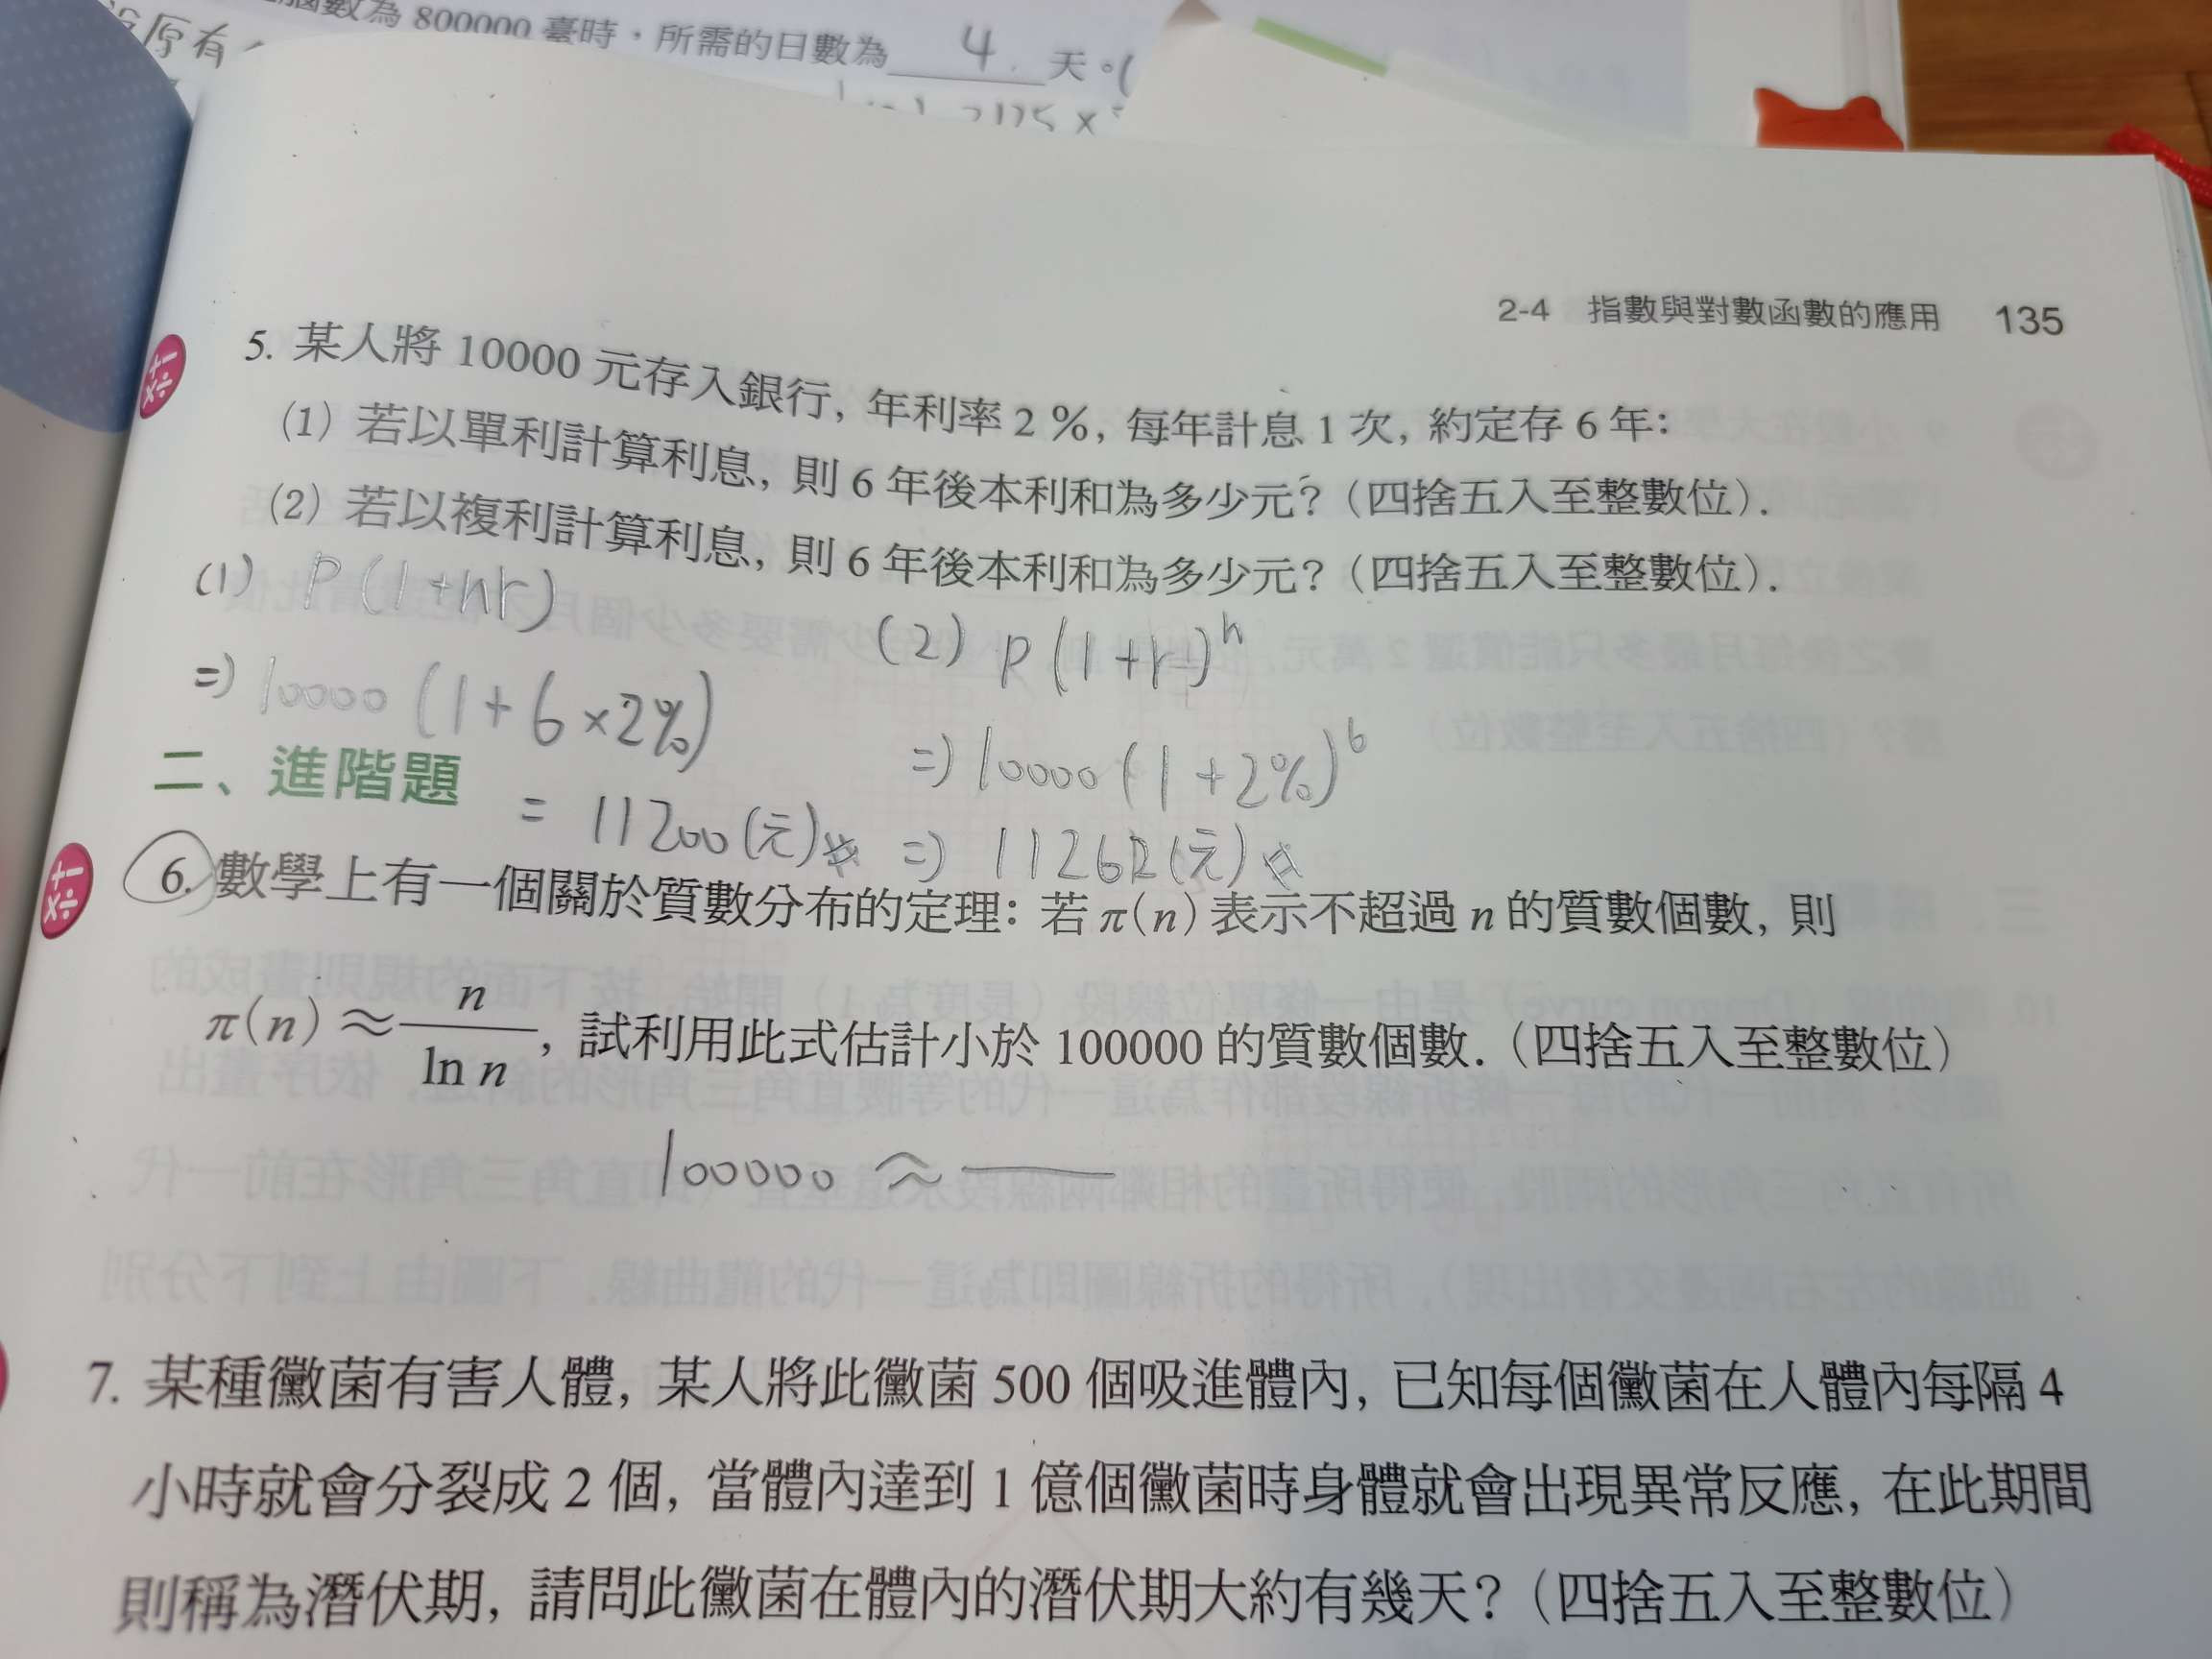 原有
個數為 800000 臺時，所需的日數為 4 天。(
2-4 指數與對數函數的應用 135
5. 某人將 10000 元存入銀行, 年利率 2 %, 每年計息 1 次, 約定存 6 年:
(1) 若以單利計算利息, 則 6 年後本利和為多少元? (四捨五入至整數位).
(2) 若以複利計算利息, 則 6 年後本利和為多少元? (四捨五入至整數位).
(1) P(1+nr)
⇒ 10000 (1+6×2%)
= 11200(元)
(2) P(1+r)^n
⇒ 10000 (1+2%)^6
⇒ 11262(元)
二、進階題
6. 數學上有一個關於質數分布的定理: 若 π(n) 表示不超過 n 的質數個數, 則
π(n) ≈ n / ln n, 試利用此式估計小於 100000 的質數個數. (四捨五入至整數位)
100000 ≈
7. 某種黴菌有害人體, 某人將此黴菌 500 個吸進體內, 已知每個黴菌在人體內每隔 4
小時就會分裂成 2 個, 當體內達到 1 億個黴菌時身體就會出現異常反應, 在此期間
則稱為潛伏期, 請問此黴菌在體內的潛伏期大約有幾天? (四捨五入至整數位)